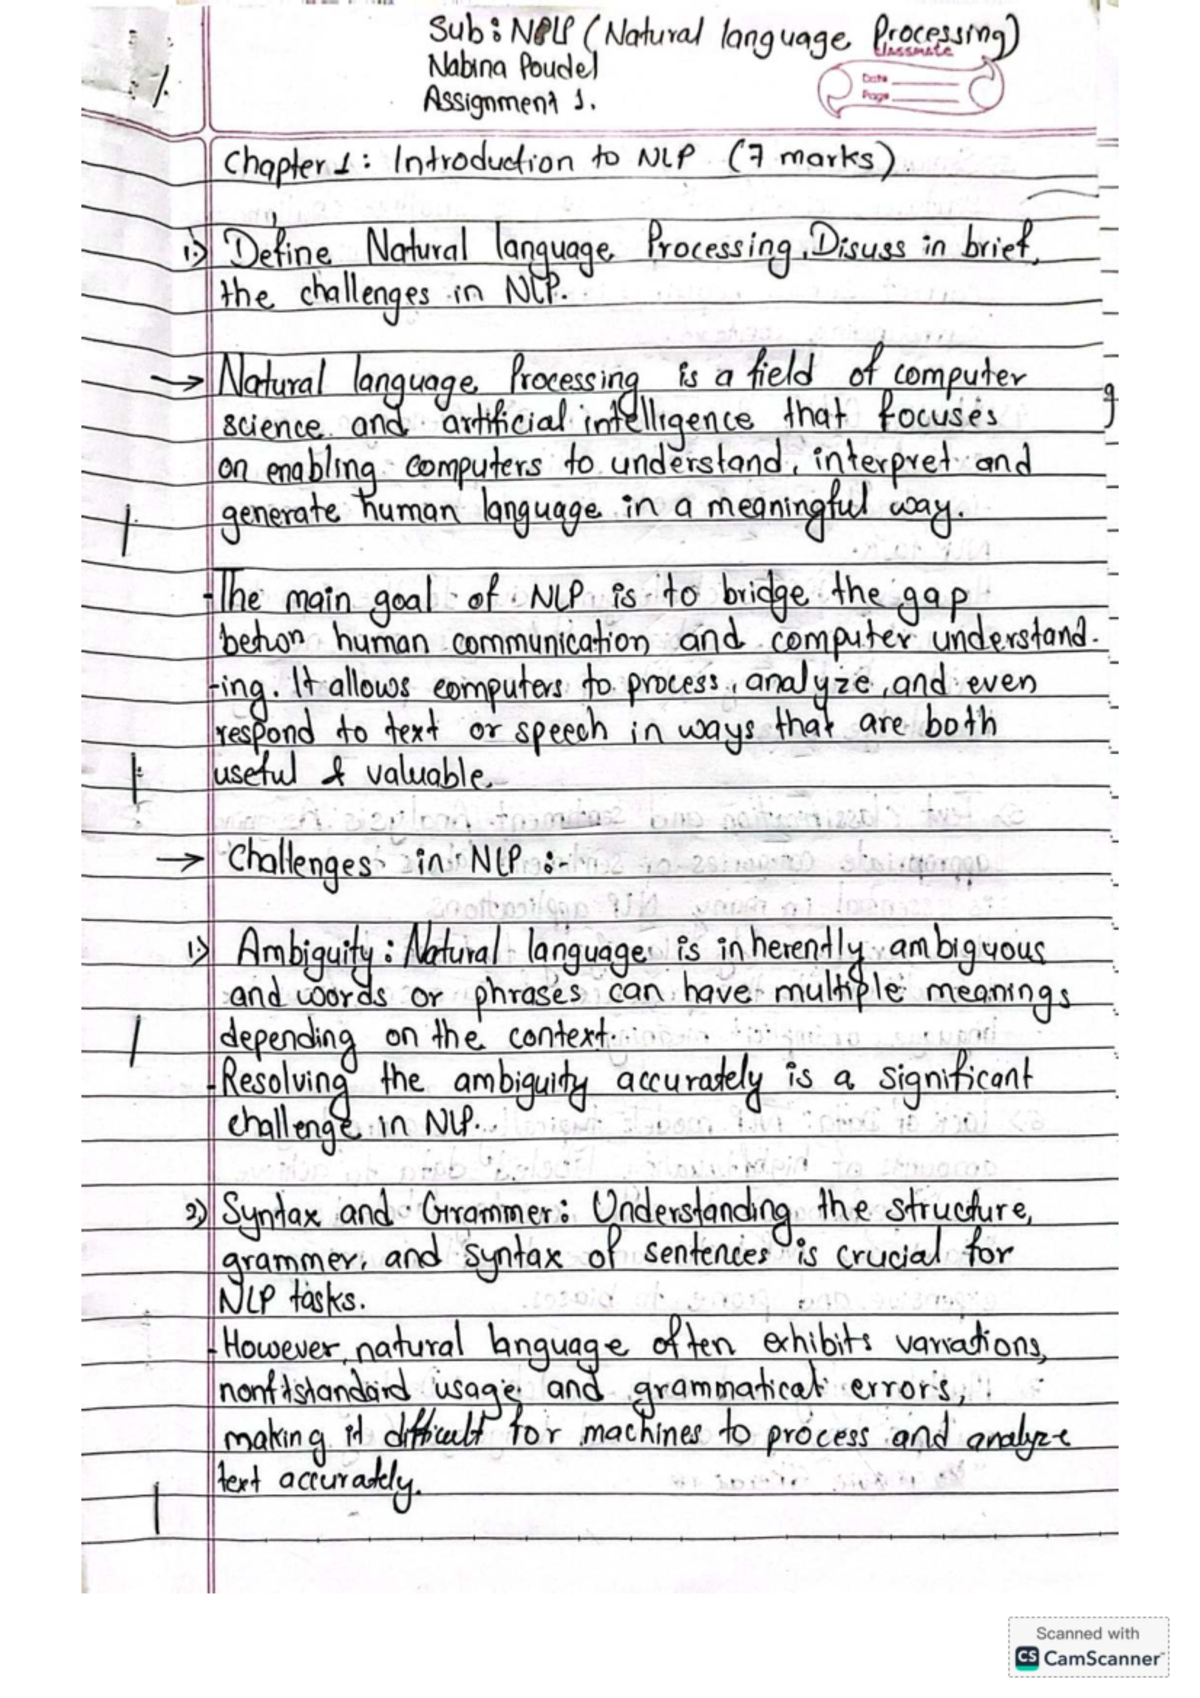 Sub: NPLP (Natural language Processing)
classmate
Nabina Poudel
Date
Assignment 1.
Page
Chapter 1: Introduction to NLP (7 marks)
1.) Define Natural language Processing. Disuss in brief,
the challenges in NLP.
→ Natural language Processing is a field of computer
science and artificial intelligence that focuses
on enabling computers to understand, interpret and
generate human language in a meaningful way.
-The main goal of NLP is to bridge the gap
human communication and computer understand-
-ing. It allows computers to process, analyze, and even
respond to text or speech in ways that are both
useful & valuable.
→ Challenges in NLP :-
1.) Ambiguity: Natural language is inherently ambiguous
and words or phrases can have multiple meanings
depending on the context.
-Resolving the ambiguity accurately is a significant
challenge in NLP.
2.) Syntax and Grammer: Understanding the structure,
grammer, and syntax of sentences is crucial for
NLP tasks.
-However, natural language often exhibits variations,
usage and grammatical errors,
making it difficult for machines to process and analyze
text accurately.
Scanned with
CS CamScanner